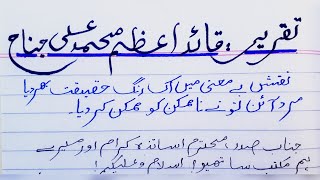 تقریر: قائد اعظم محمد علی جناح
نقشِ بے معنی میں اک رنگِ حقیقت بھر دیا
مردِ آہن تو نے ناممکن کو ممکن کر دیا۔
جناب صدر محترم اساتذہ کرام اور میرے
ہم مکتب ساتھیو! اسلام و علیکم!